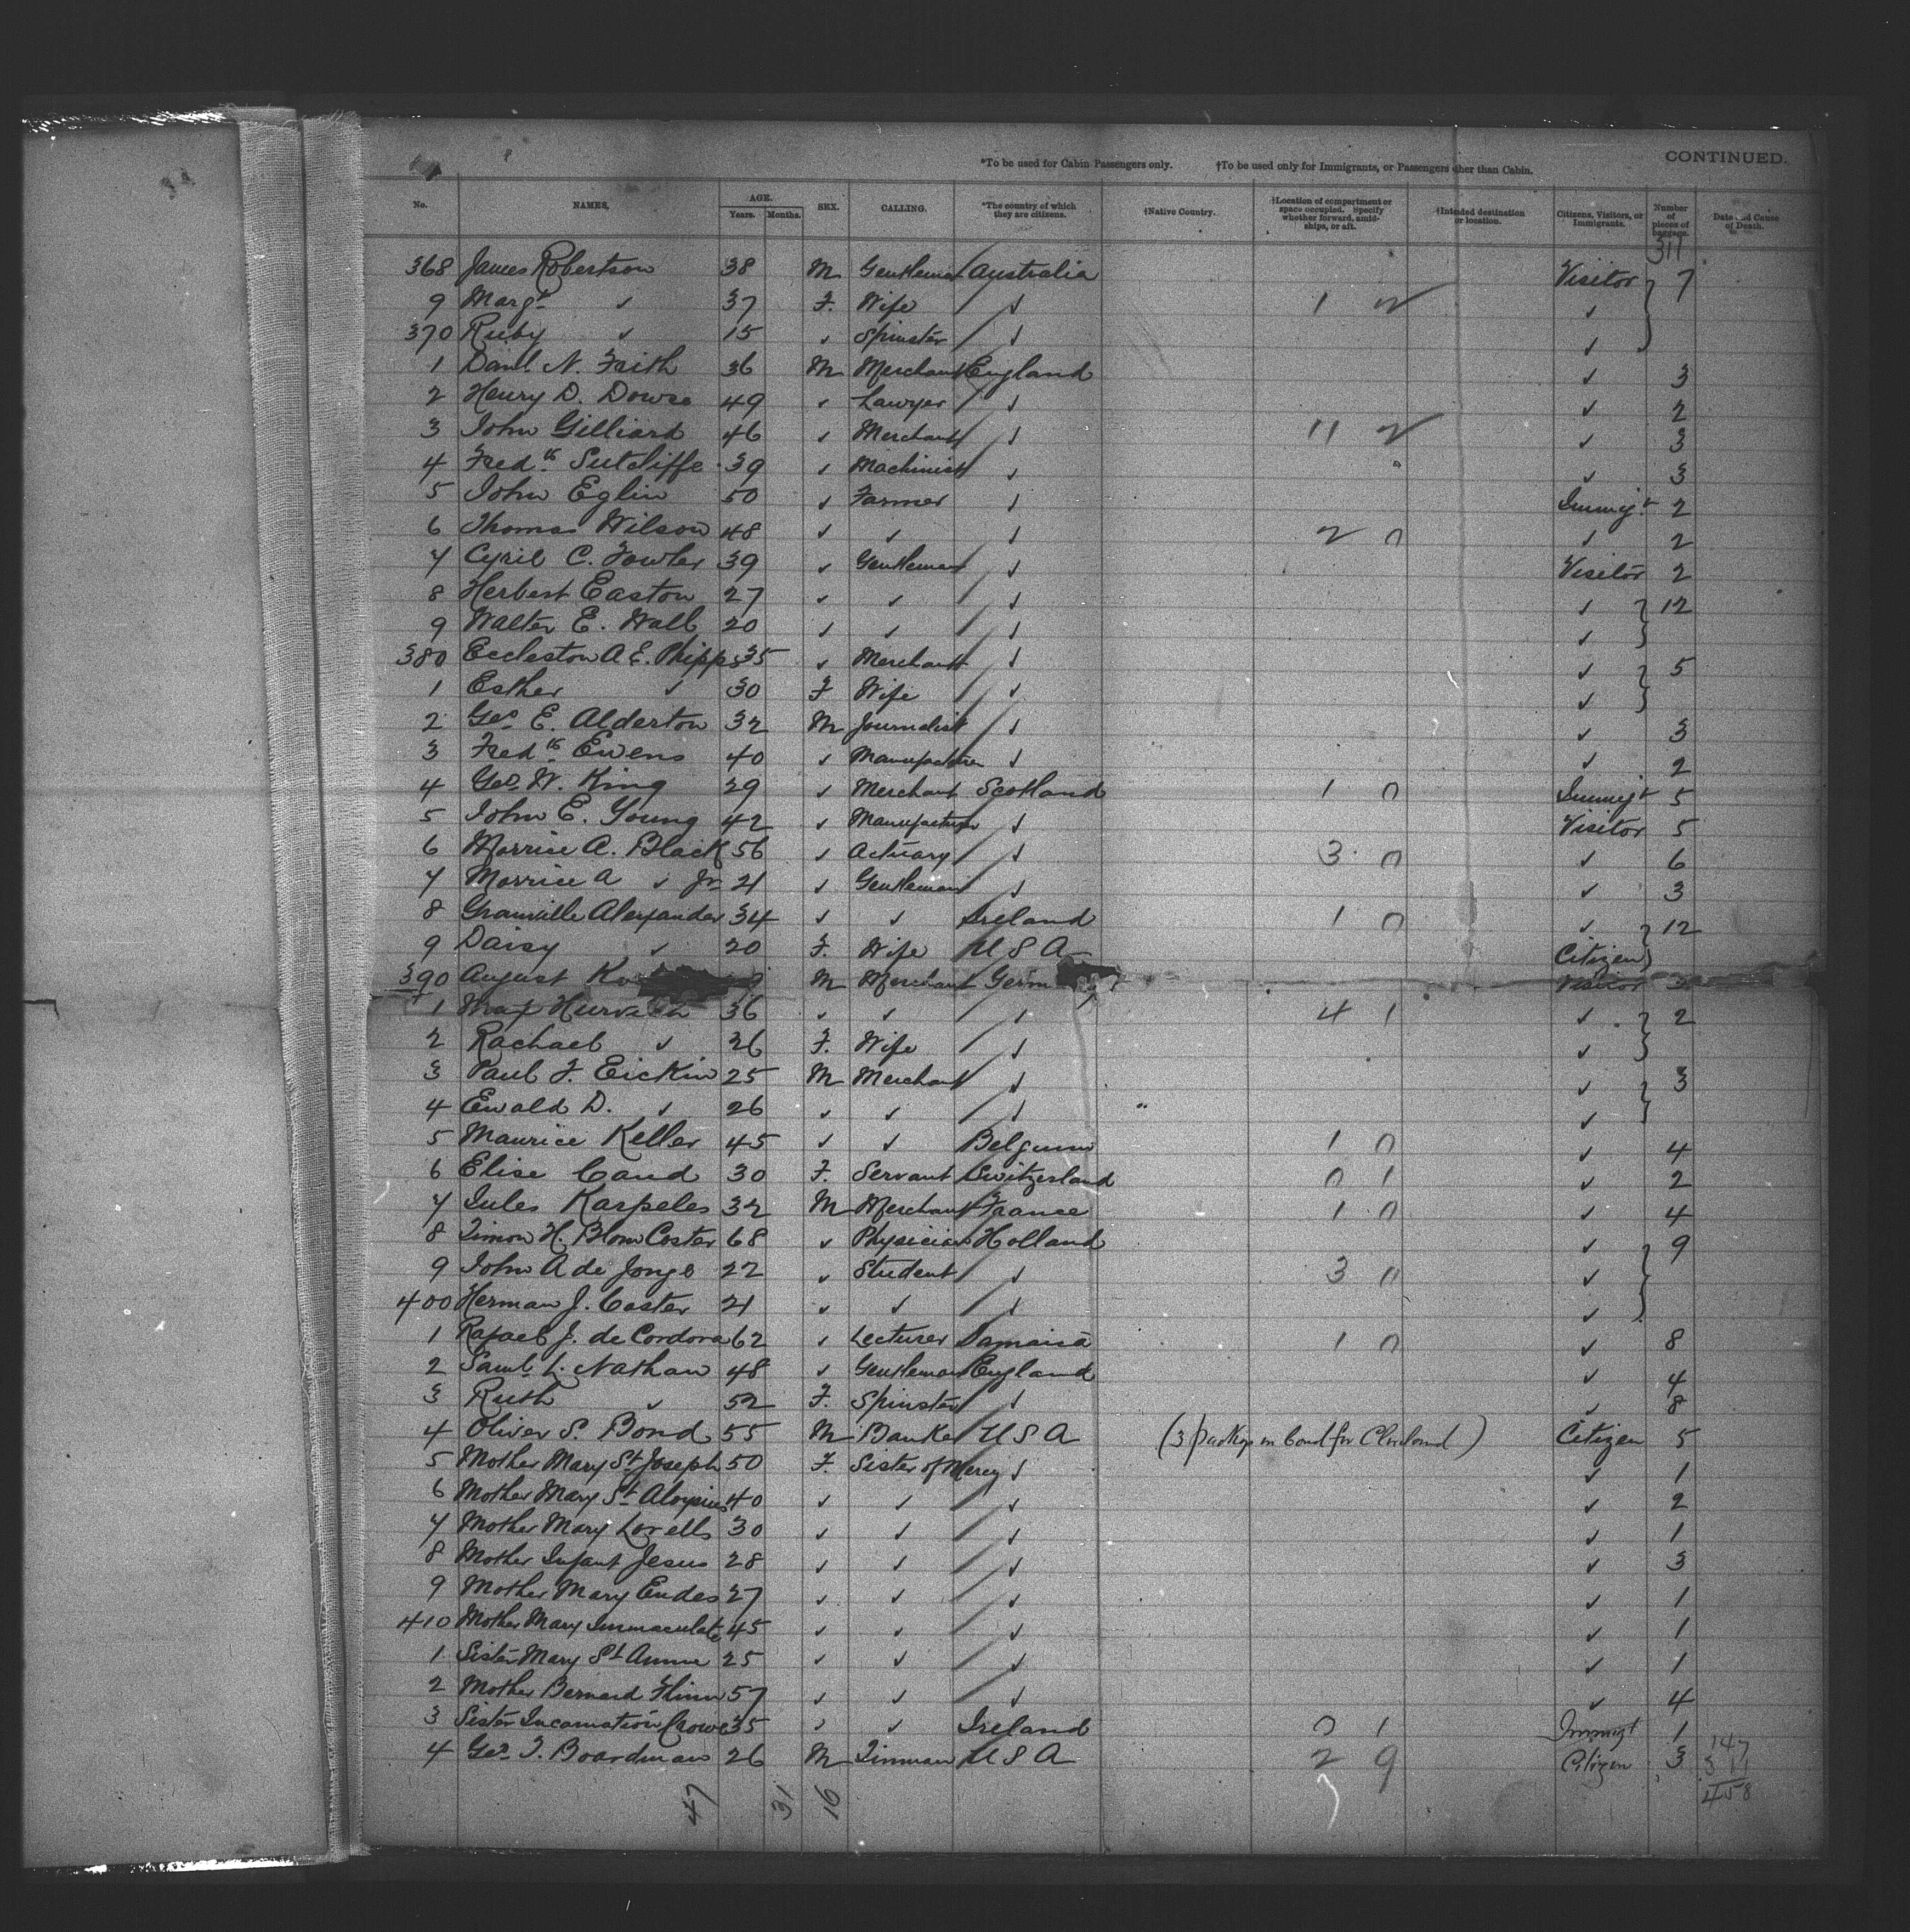 *To be used for Cabin Passengers only. †To be used only for Immigrants, or Passengers other than Cabin. CONTINUED.
No. NAMES. AGE. Years. Months. SEX. CALLING. *The country of which they are citizens. †Native Country. †Location of compartment or space occupied. Specify whether forward, amidships, or aft. †Intended destination or location. Citizens, Visitors, or Immigrants. Number of pieces of baggage. Date and Cause of Death.
311
368 James Robertson 38 M Gentleman Australia Visitor 7
9 Margt ✓ 37 F. Wife ✓ 1 2 ✓
370 Ruby ✓ 15 ✓ Spinster ✓ ✓
1 Danl N. Frith 36 M Merchant England ✓ 3
2 Henry D. Dowse 49 ✓ Lawyer ✓ ✓ 2
3 John Gilliard 46 ✓ Merchant ✓ 11 2 ✓ 3
4 Fredk Sutcliffe 39 ✓ Machinist ✓ ✓ 3
5 John Eglin 50 ✓ Farmer ✓ Immigt 2
6 Thomas Wilson 48 ✓ ✓ ✓ 2 0 ✓ 2
7 Cyril C. Fowler 39 ✓ Gentleman ✓ Visitor 2
8 Herbert Easton 27 ✓ ✓ ✓ ✓ 12
9 Walter E. Wall 20 ✓ ✓ ✓ ✓
380 Eccleston A E. Phipps 35 ✓ Merchant ✓ ✓ 5
1 Esther ✓ 30 F Wife ✓ ✓
2 Geo E. Alderton 32 M Journalist ✓ ✓ 3
3 Fredk Ewens 40 ✓ Manufacturer ✓ ✓ 2
4 Geo. W. King 29 ✓ Merchant Scotland 1 0 Immigt 5
5 John E. Young 42 ✓ Manufacturer ✓ Visitor 5
6 Morrice A. Black 56 ✓ Actuary ✓ 3 0 ✓ 6
7 Morrice A ✓ Jr 21 ✓ Gentleman ✓ ✓ 3
8 Granville Alexander 34 ✓ ✓ Ireland 1 0 ✓ 12
9 Daisy ✓ 20 F. Wife U S A Citizen
390 August M Merchant Germ Visitor
1 Max 36 ✓ ✓ ✓ 4 1 ✓ 2
2 Rachael ✓ 26 F. Wife ✓ ✓
3 Paul F. Eickin 25 M Merchant ✓ ✓ 3
4 Ewald D. ✓ 26 ✓ ✓ ✓ ✓
5 Maurice Keller 45 ✓ ✓ Belgium 1 0 ✓ 4
6 Elise Cand 30 F. Servant Switzerland 0 1 ✓ 2
7 Jules Karpeles 32 M Merchant France 1 0 ✓ 4
8 Simon H. Blom Coster 68 ✓ Physician Holland ✓ 9
9 John A de Jonge 22 ✓ Student ✓ 3 0 ✓
400 Herman J. Coster 21 ✓ ✓ ✓ ✓
1 Rafael J. de Cordova 62 ✓ Lecturer Jamaica 1 0 ✓ 8
2 Saml L. Nathan 48 ✓ Gentleman England ✓ 4
3 Ruth ✓ 52 F. Spinster ✓ ✓ 8
4 Oliver S. Bond 55 M Banker U S A (3 packgs in bond for Cleveland) Citizen 5
5 Mother Mary St Joseph 50 F Sister of Mercy ✓ ✓ 1
6 Mother Mary St Aloysius 40 ✓ ✓ ✓ ✓ 2
7 Mother Mary 30 ✓ ✓ ✓ ✓ 1
8 Mother Infant Jesus 28 ✓ ✓ ✓ ✓ 3
9 Mother Mary Eudes 27 ✓ ✓ ✓ ✓ 1
410 Mother Mary Immaculate 45 ✓ ✓ ✓ ✓ 1
1 Sister Mary St Anne 25 ✓ ✓ ✓ ✓ 1
2 Mother Bernard Flinn 57 ✓ ✓ ✓ ✓ 4
3 Sister Incarnation Crowe 35 ✓ ✓ Ireland 0 1 Immigt 1
4 Geo. T. Boardman 26 M Tinman U S A 2 9 Citizen 3
147
311
458
47 31 16